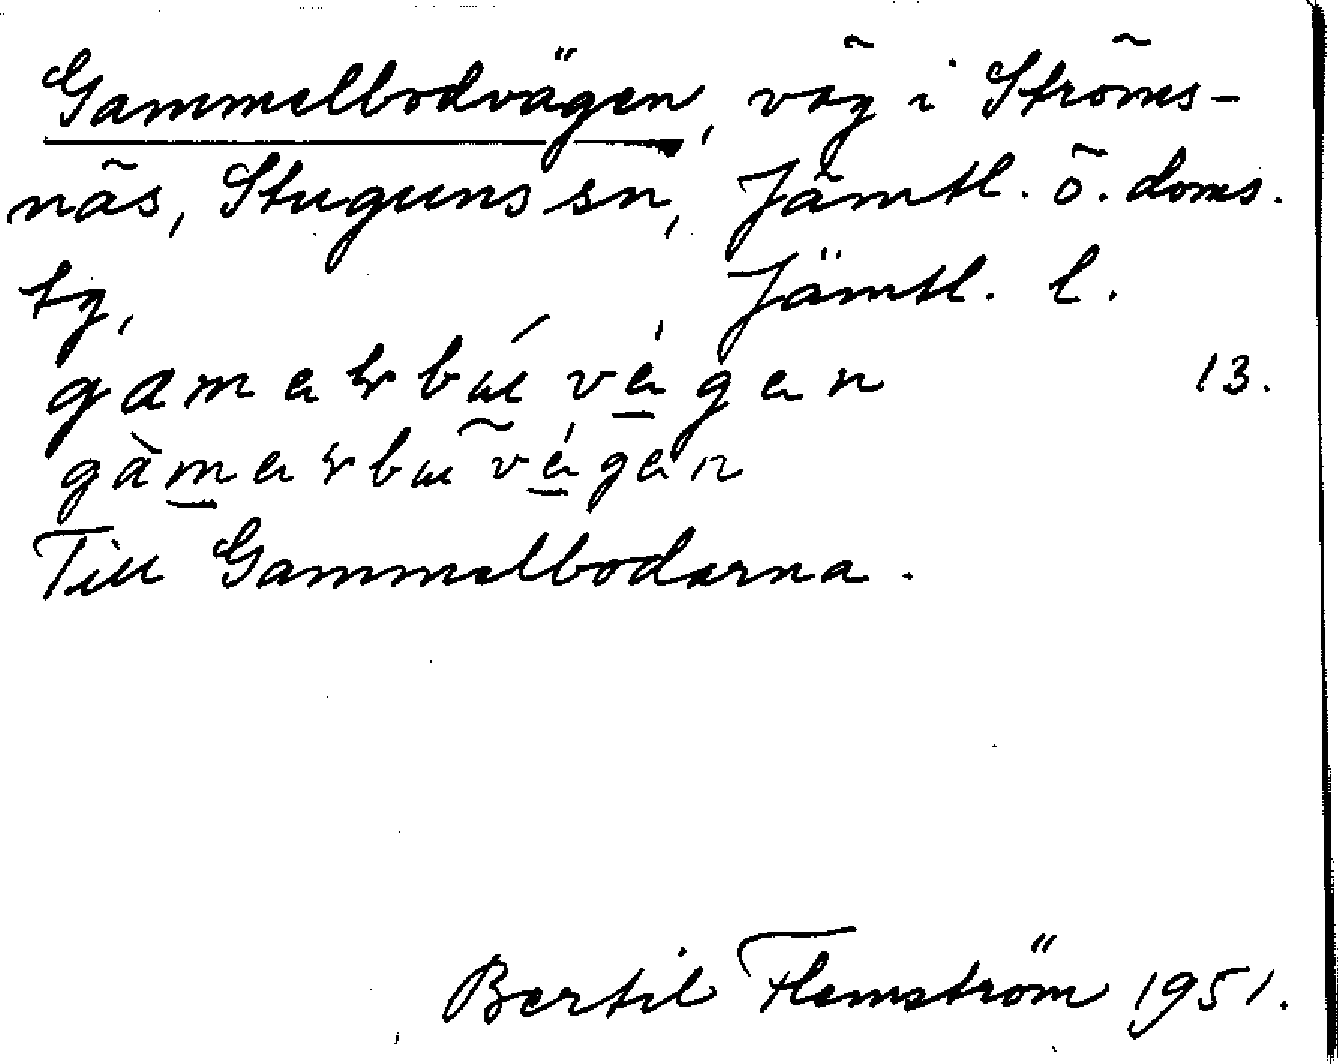 Gammelbodvägen, väg i Ströms-
näs, Stuguns sn, Jämtl. ö. doms.
sg, Jämtl. l.
13.
Till Gammelbodarna.
Bertil Flemström 1951.